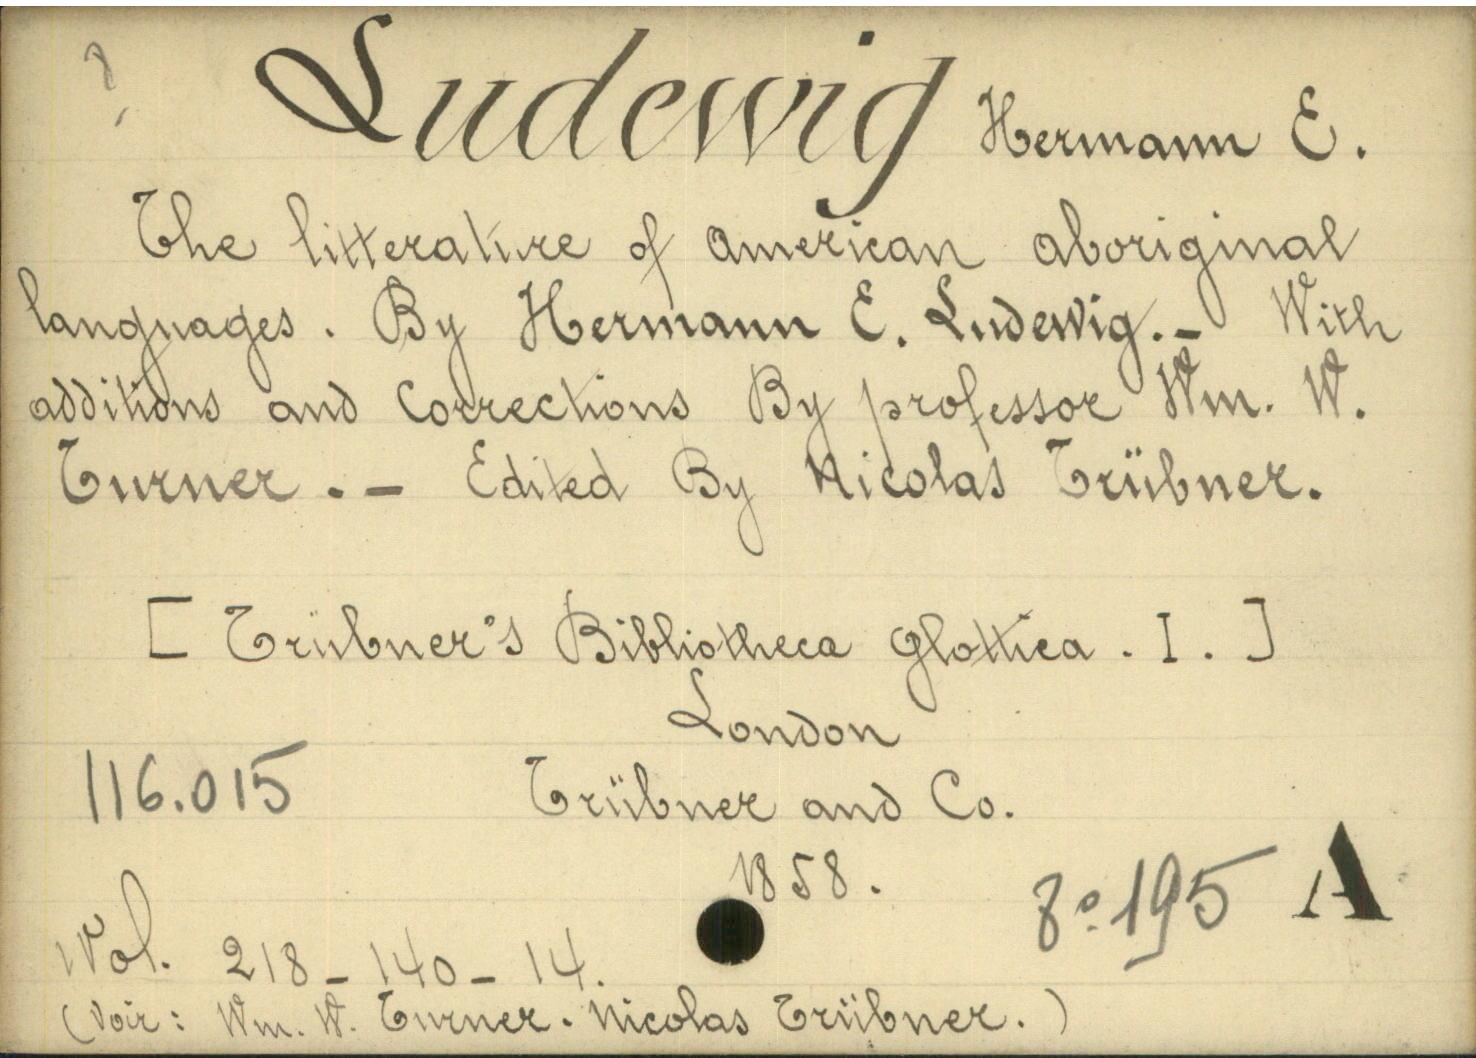 Ludewig Hermann E.
The litterature of american aboriginal
languages. By Hermann E. Ludewig. – With
additions and Corrections By professor Wm. W.
Turner. – Edited By Nicolas Trübner.
[ Trübner's Bibliotheca glottica. I. ]
London
116.015 Trübner and Co.
1858.
8º 195 A
Vol. 218 – 140 – 14.
(Voir: Wm. W. Turner. Nicolas Trübner.)